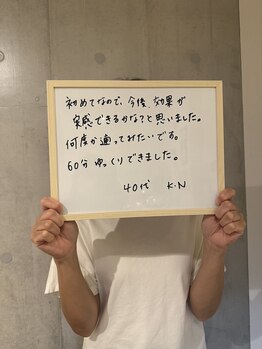 初めてなので、今後 効果が
実感できるかな?と思いました。
何度か通ってみたいです。
60分ゆっくりできました。
40代 K・N